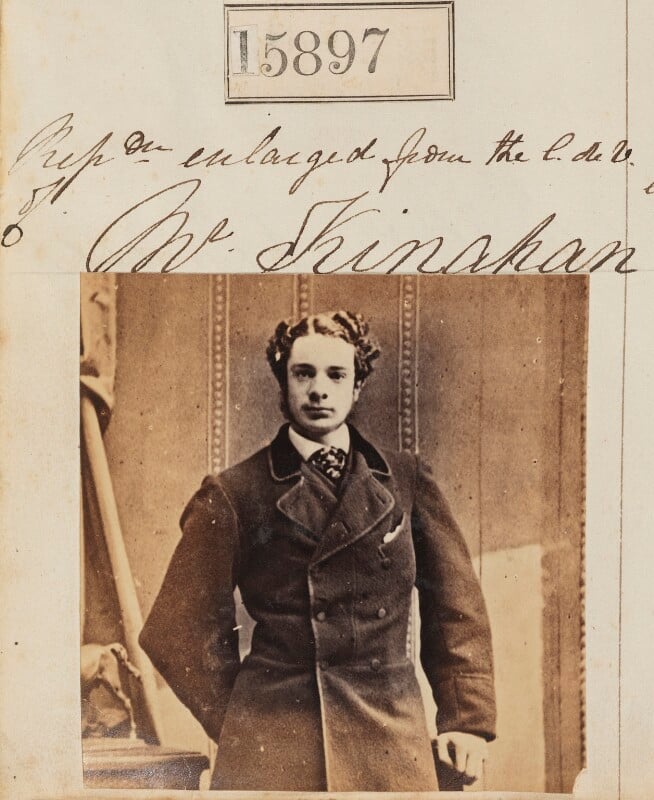 15897
Rep dn enlarged from the C. de V.
of
Mr. Kinahan